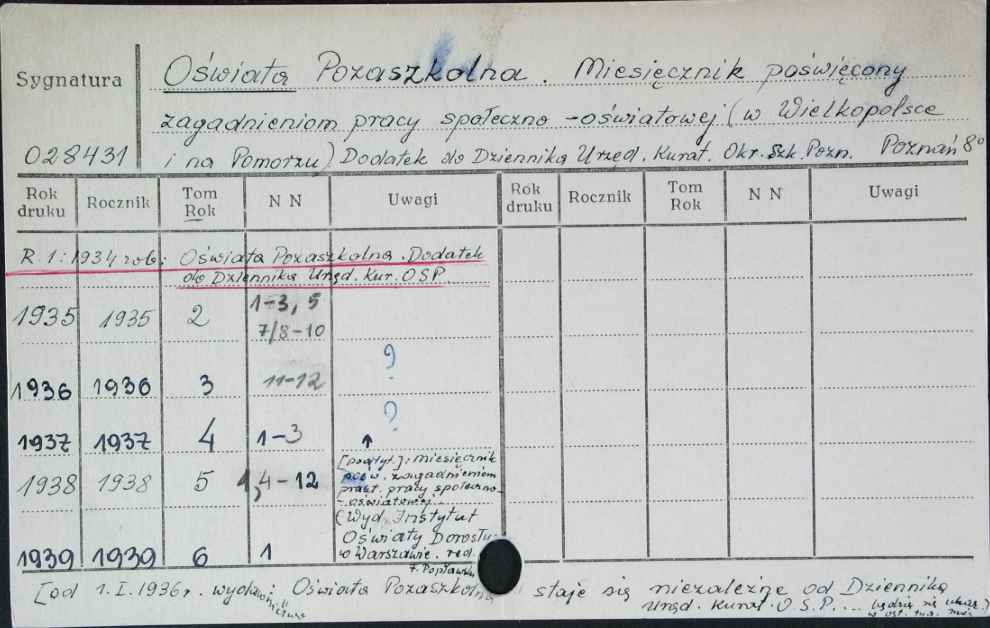 Sygnatura
Oświata Pozaszkolna. Miesięcznik poświęcony
zagadnieniom pracy społeczno-oświatowej (w Wielkopolsce
028431 i na Pomorzu) Dodatek do Dziennika Urzęd. Kurat. Okr. Szk. Pozn. Poznań 8°
Rok druku Rocznik Tom Rok N N Uwagi Rok druku Rocznik Tom Rok N N Uwagi
R. 1: 1934 Oświata Pozaszkolna. Dodatek
do Dziennika Urzęd. Kur. OSP.
1935 1935 2 1-3, 5
7/8-10
1936 1936 3 11-12 ?
1937 1937 4 1-3 ?
↑
1938 1938 5 1, 4-12
[podtyt.]: miesięcznik
pośw. zagadnieniom
prakt. pracy społeczno-
-oświatowej
(Wyd. Instytut
Oświaty Dorosłu-
w Warszawie. red.
1939 1939 6 1 Popławski
[od 1.I.1936r. Oświata Pozaszkolna staje się niezależne od Dziennika
Urzęd. Kurat. O.S.P....